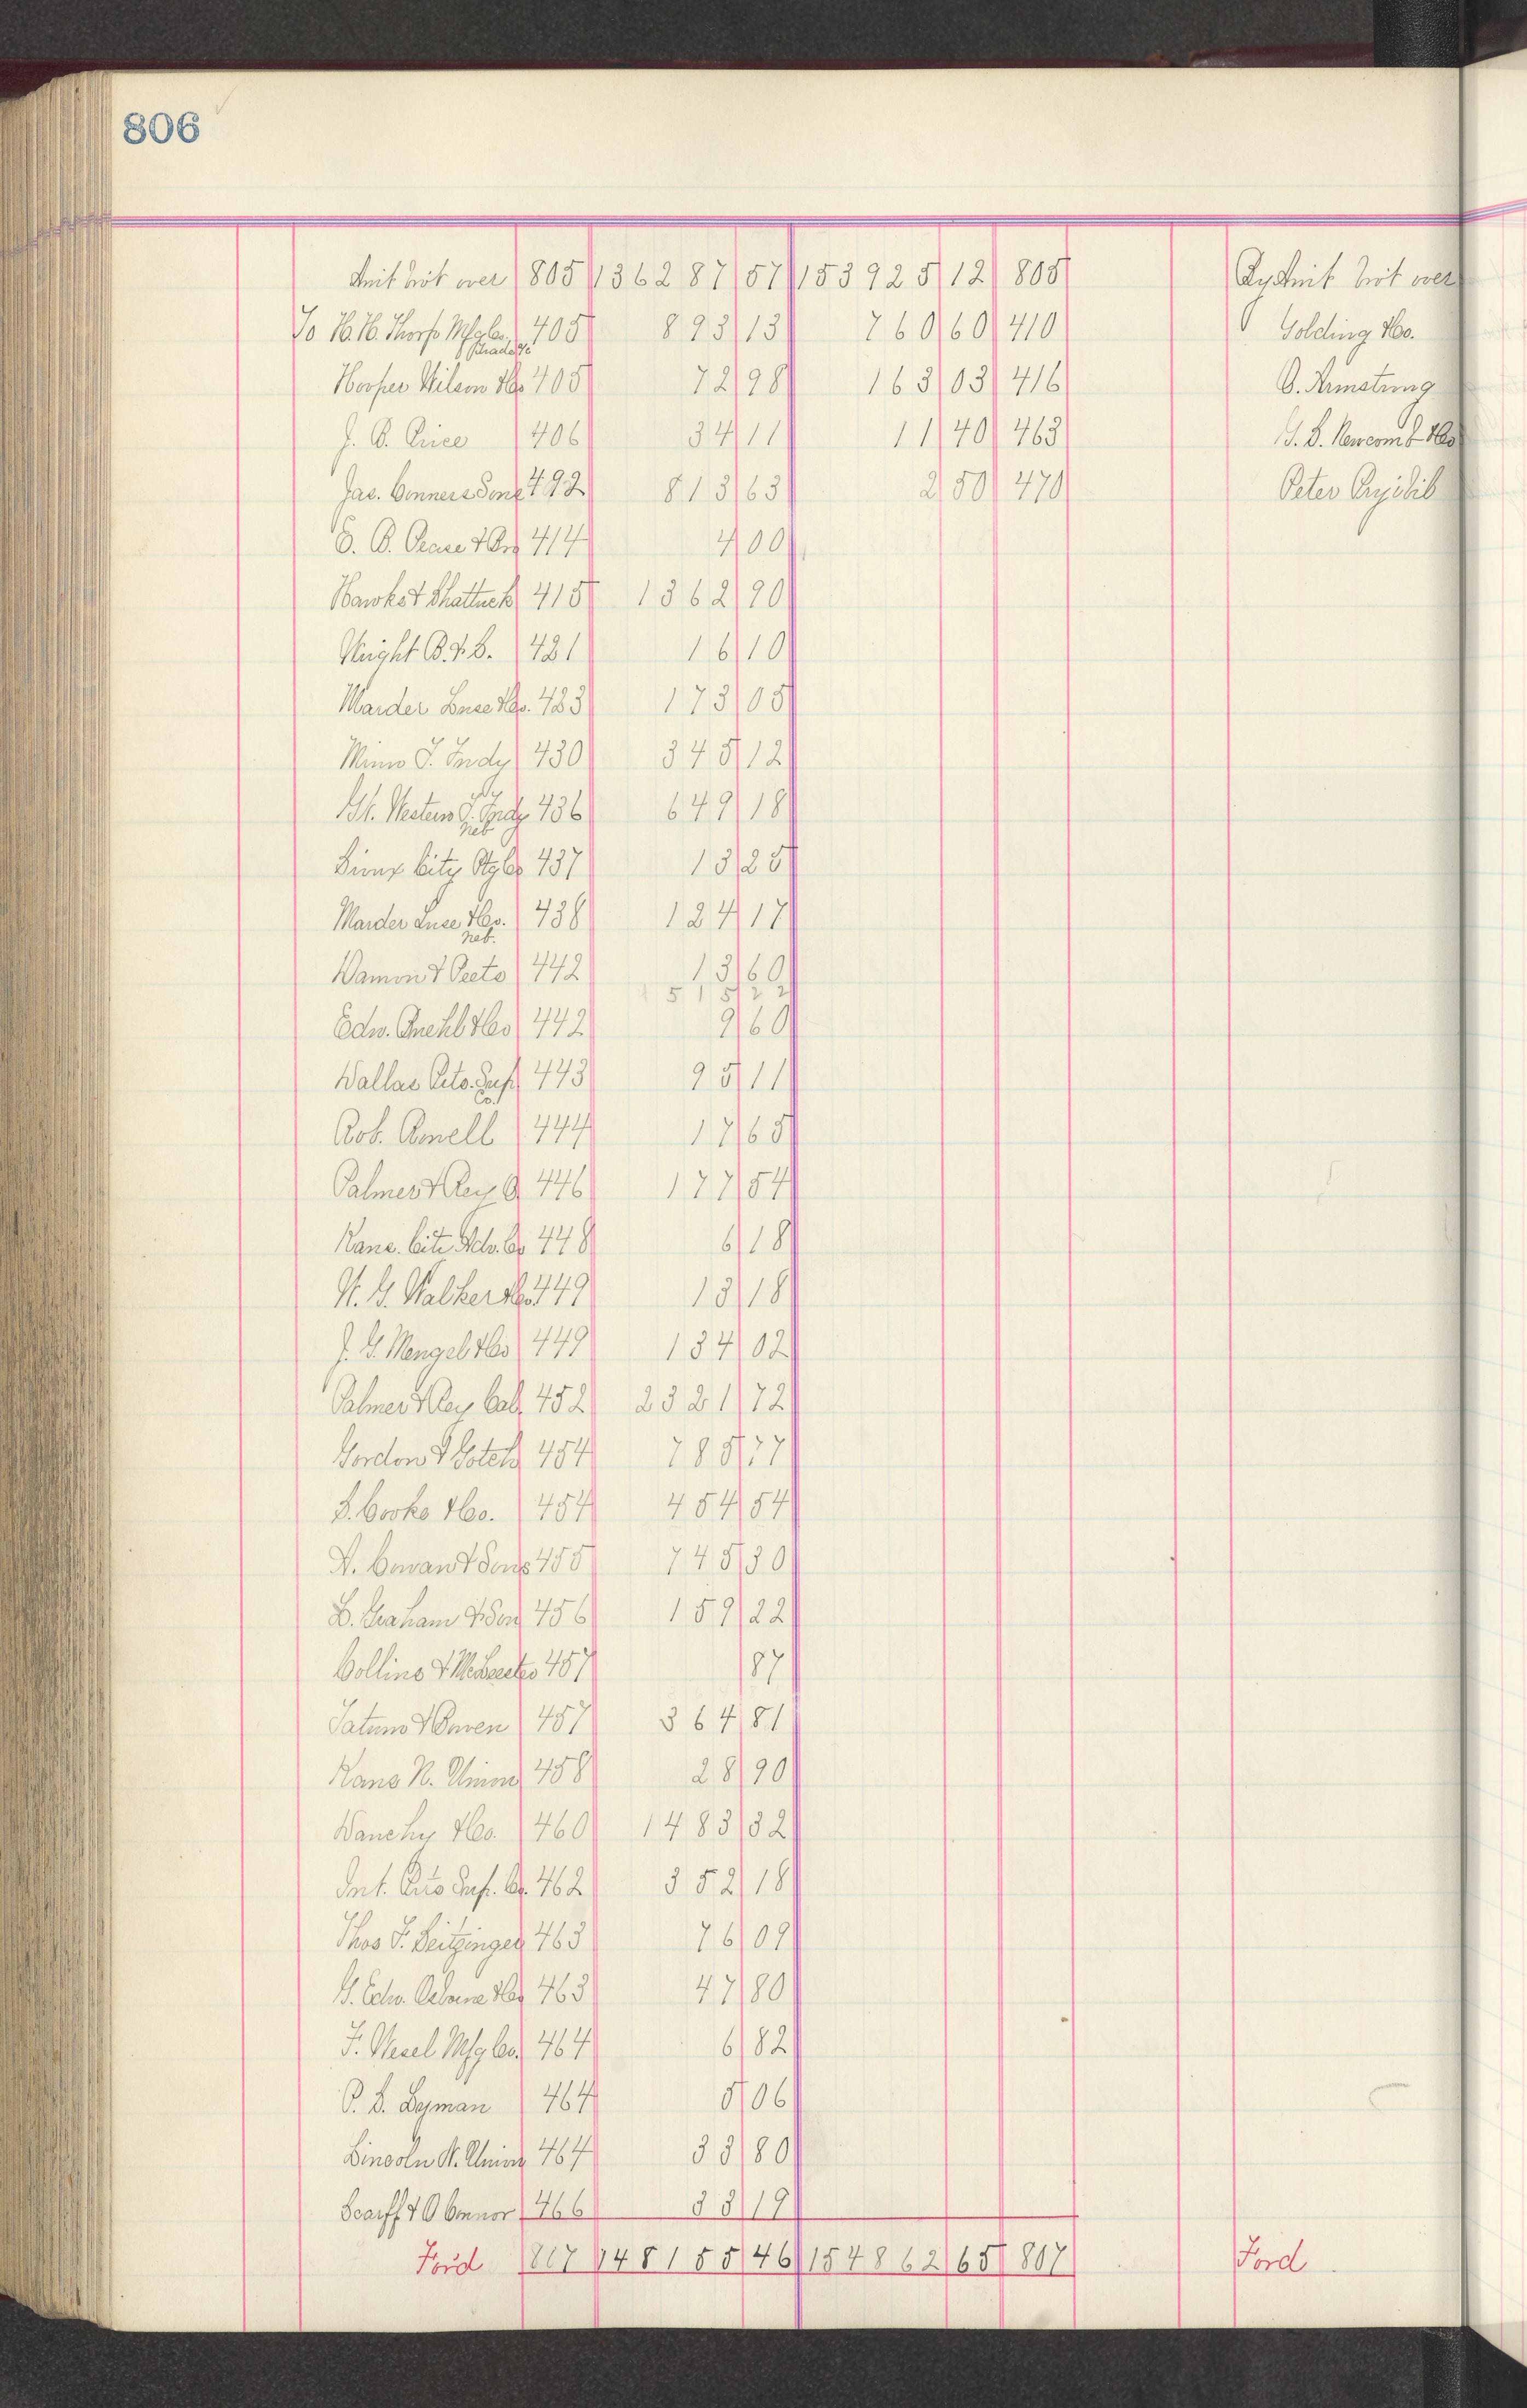 806
Amt brot over 805 136287 57 153925 12 805 By Amt brot over
To H. H. Thorp Mfg Co. 405 893 13 760 60 410 Golding & Co.
Hooper Wilson & Co 405 72 98 163 03 416 C. Armstrong
J. B. Price 406 34 11 11 40 463 G. S. Newcomb & Co
Jas. Conners Sons 492 813 63 2 50 470 Peter
414 4 00
Hawks & Shattuck 415 1362 90
Wright 421 16 10
Marder Luse & Co. 423 173 05
Minn T. Fndy 430 345 12
Gt. Western T. Fndy 436 649 18
Neb
Sioux City Ptg Co 437 13 25
Marder Luse & Co. 438 124 17
Neb.
Damon & Peets 442 13 60
515 22
Edw. & Co 442 9 60
Dallas Ptrs. Sup. 443 95 11
Co.
Rob. 444 17 65
Palmer & Rey 446 177 54
Kans. City 448 6 18
W. G. Walker & Co 449 13 18
J. G. Mengel & Co 449 134 02
Palmer & Rey Cal. 452 2321 72
Gordon & Gotch 454 785 77
S. Cooke & Co. 454 454 54
A. Cowan & Sons 455 745 30
B. Graham & Son 456 159 22
Collins & 457 87
Tatum & Bowen 457 364 81
Kans N. Union 458 28 90
& Co. 460 1483 32
Int. Ptrs Sup. Co. 462 352 18
Thos F. 463 76 09
G. Edw. Osborne & Co 463 47 80
F. Wesel Mfg Co. 464 6 82
P. S. 464 5 06
Lincoln N. Union 464 33 80
Scarff & O Connor 466 33 19
Ford 807 148155 46 154862 65 807 Ford